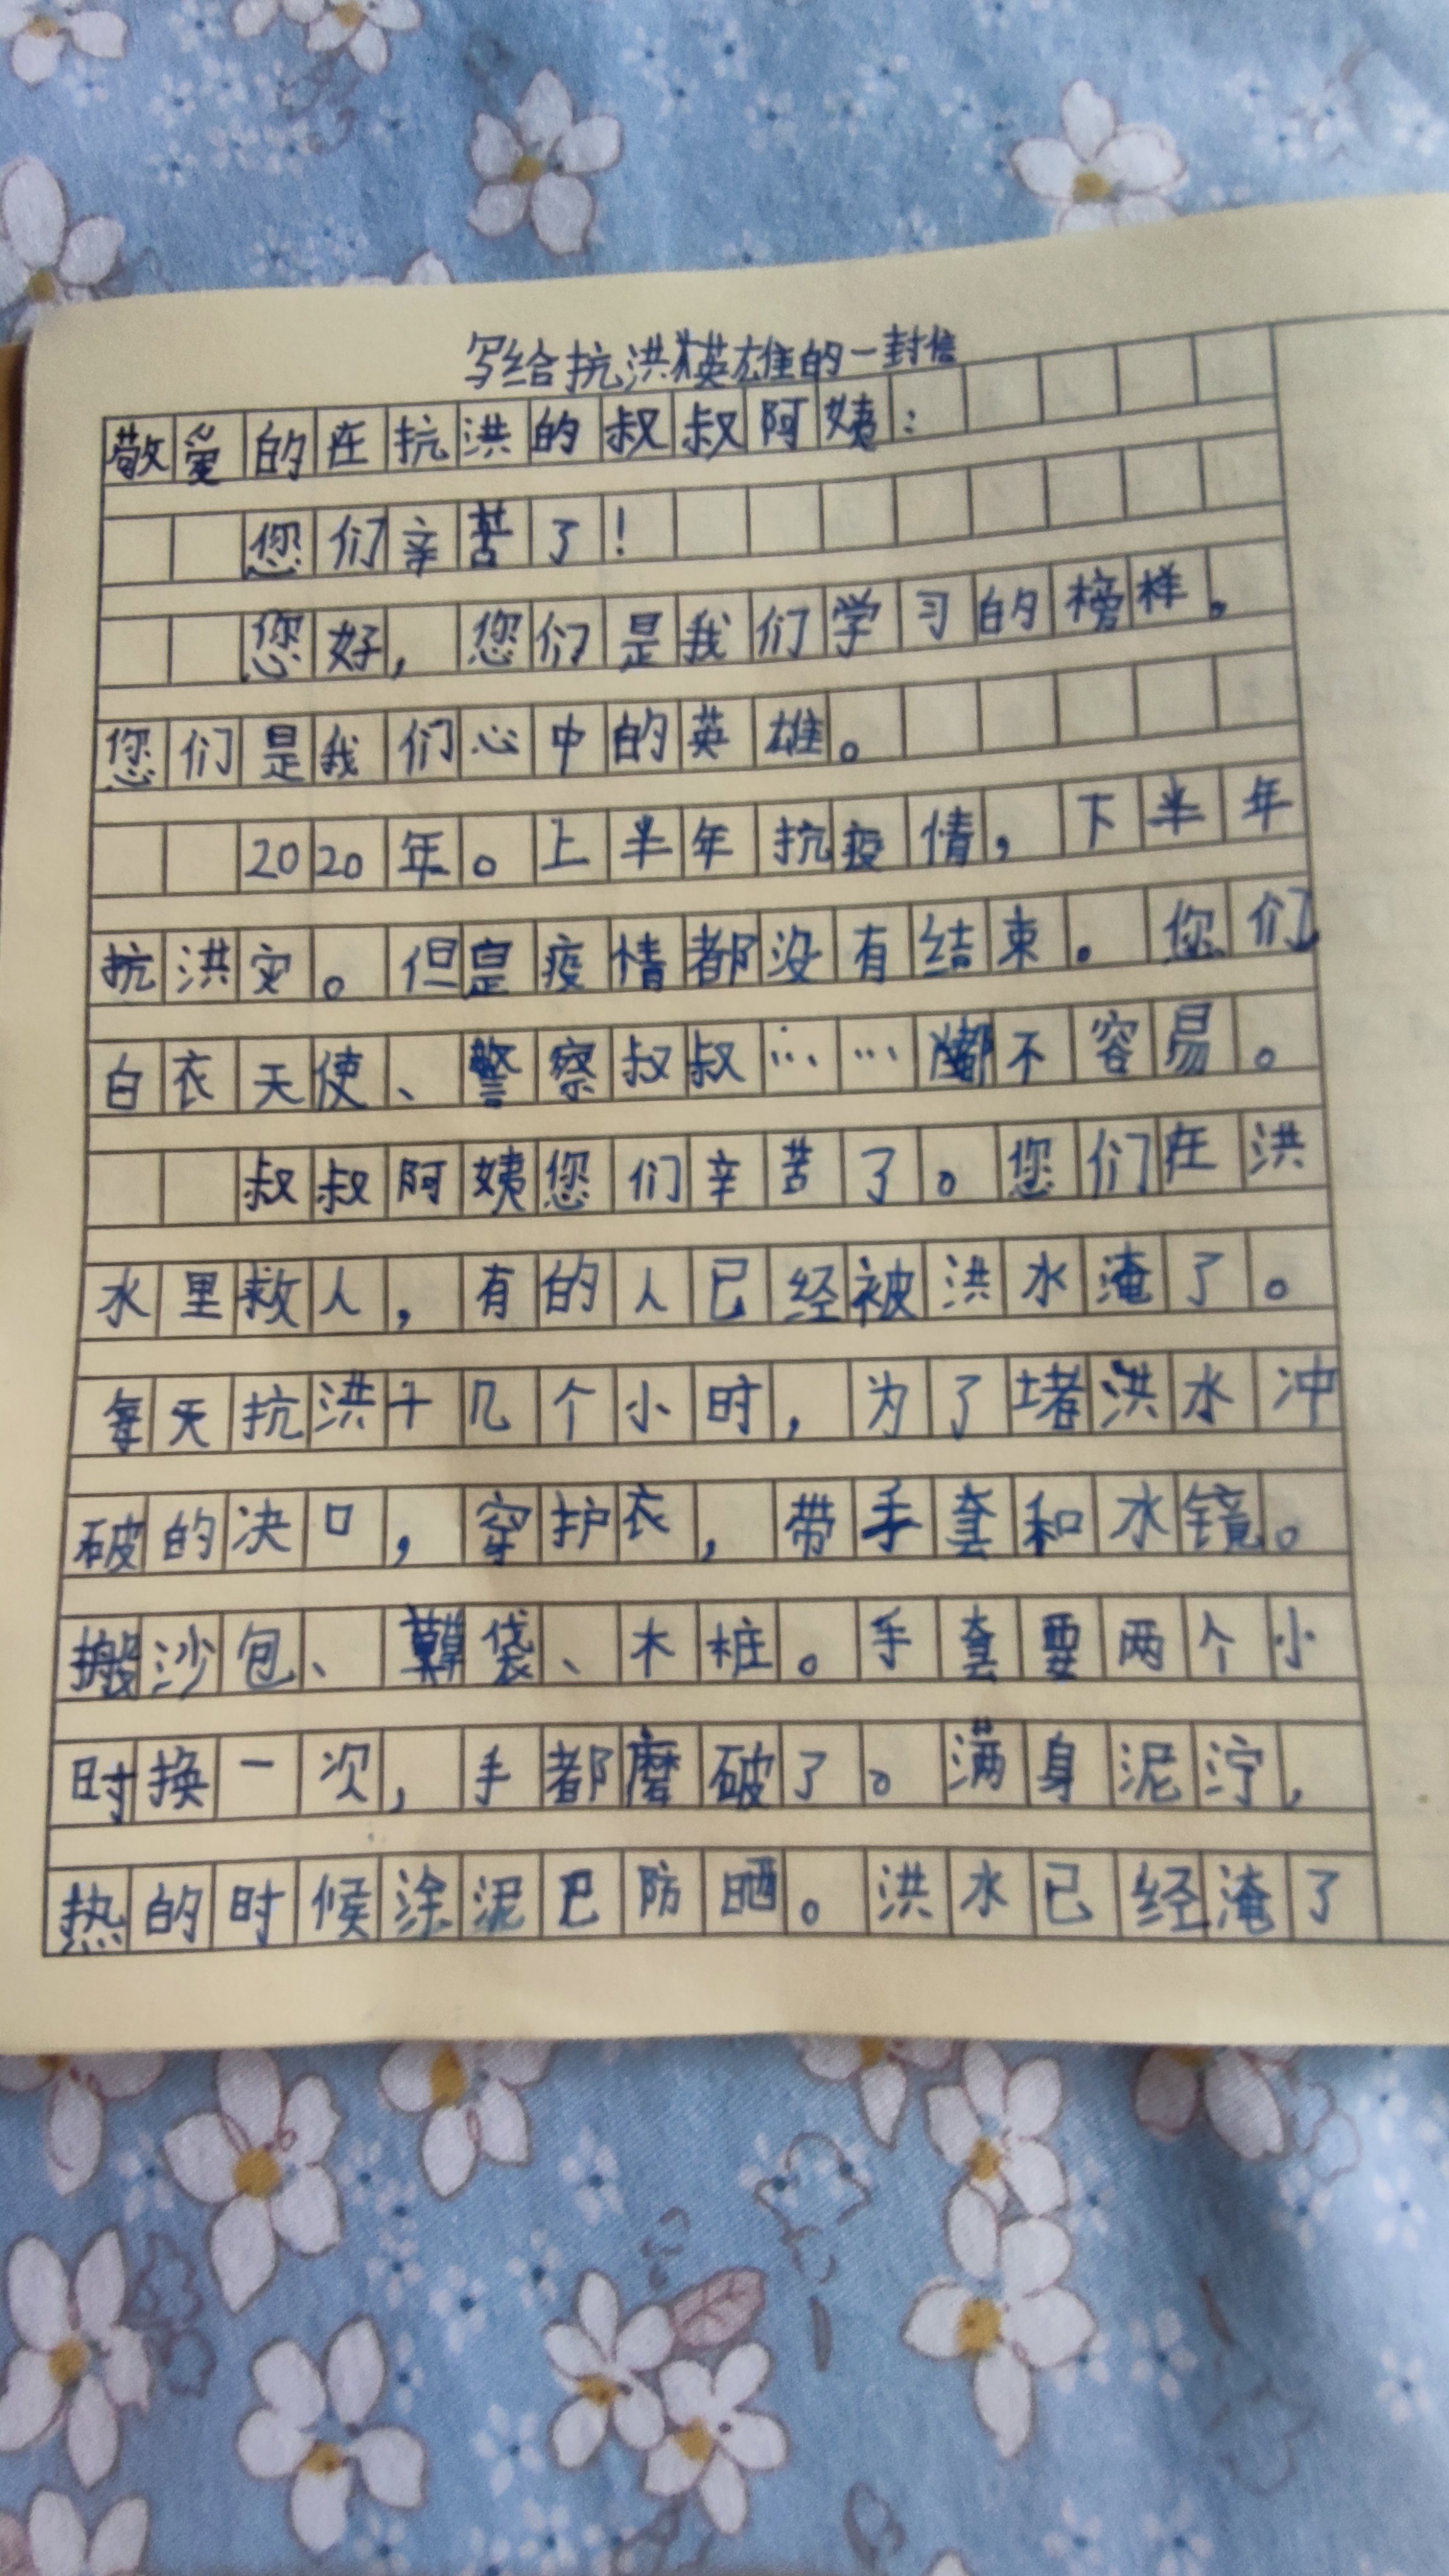 写给抗洪英雄的一封信
敬爱的在抗洪的叔叔阿姨：
您们辛苦了！
您好，您们是我们学习的榜样。
您们是我们心中的英雄。
2020年。上半年抗疫情，下半年
抗洪灾。但是疫情都没有结束。您们
白衣天使、警察叔叔……都不容易。
叔叔阿姨您们辛苦了。您们在洪
水里救人，有的人已经被洪水淹了。
每天抗洪十几个小时，为了堵洪水冲
破的决口，穿护衣，带手套和水镜。
搬沙包、袋、木桩。手套要两个小
时换一次，手都磨破了。满身泥泞，
热的时候涂泥巴防晒。洪水已经淹了